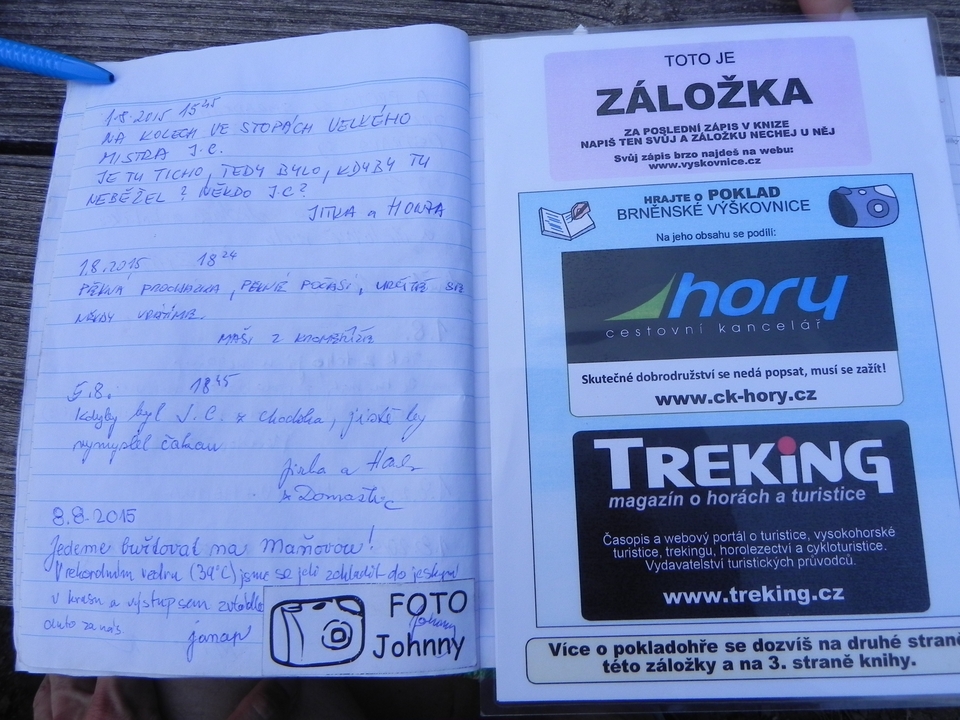 1.8.2015 15⁴⁵
NA KOLECH VE STOPÁCH VELKÉHO
MISTRA J.C.
JE TU TICHO, TEDY BYLO, KDYBY TU
NEBĚŽEL ? NĚKDO J.C?
JITKA a HONZA
1.8.2015 18²⁴
PĚKNÁ PROCHÁZKA, PĚKNÉ POČASÍ, URČITĚ SE
NĚKDY VRÁTÍME.
MAŠI Z KROMĚŘÍŽE
5.8. 18⁴⁵
Kdyby byl J.C. z Chodska, jistě by
vymyslel čakan
Jirka a
z Domažlic
8.8.2015
Jedeme buřtovat na Maňovou!
V rekordním vedru (39°C) jsme se jeli zchladit do jeskyní
v krasu a výstupem
auto za nás.
janap
FOTO
Johnny
Johnny
TOTO JE
ZÁLOŽKA
ZA POSLEDNÍ ZÁPIS V KNIZE
NAPIŠ TEN SVŮJ A ZÁLOŽKU NECHEJ U NĚJ
Svůj zápis brzo najdeš na webu:
www.vyskovnice.cz
HRAJTE O POKLAD
BRNĚNSKÉ VÝŠKOVNICE
Na jeho obsahu se podílí:
hory
cestovní kancelář
Skutečné dobrodružství se nedá popsat, musí se zažít!
www.ck-hory.cz
TREKiNG
magazín o horách a turistice
Časopis a webový portál o turistice, vysokohorské
turistice, trekingu, horolezectví a cykloturistice.
Vydavatelství turistických průvodců.
www.treking.cz
Více o pokladohře se dozvíš na druhé straně
této záložky a na 3. straně knihy.